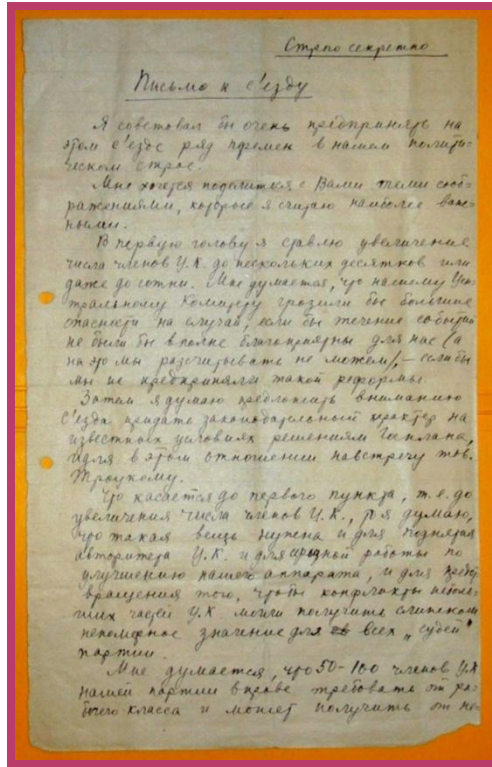 Строго секретно
Письмо к с'езду
Я советовал бы очень предпринять на
этом с'езде ряд перемен в нашем полити-
ческом строе.
Мне хочется поделиться с Вами теми сооб-
ражениями, которые я считаю наиболее важ-
ными.
В первую голову я ставлю увеличение
числа членов Ц.К. до нескольких десятков или
даже до сотни. Мне думается, что нашему Цен-
тральному Комитету грозили бы большие
опасности на случай, если бы течение событий
не были бы вполне благоприятны для нас (а
на это мы рассчитывать не можем), – если бы
мы не предприняли такой реформы.
Затем я думаю предложить вниманию
с'езда придать законодательный характер на
известных условиях решениям Госплана,
идя в этом отношении навстречу тов.
Троцкому.
Что касается до первого пункта, т.е. до
увеличения числа членов Ц.К., то я думаю,
что такая вещь нужна и для поднятия
авторитета Ц.К. и для работы по
улучшению нашего аппарата, и для предот-
вращения того, чтобы конфликты неболь-
ших частей Ц.К. могли получить слишком
непомерное значение для всех „судеб"
партии.
Мне думается, что 50-100 членов Ц.К.
наша партии вправе требовать от ра-
бочего класса и может получить от не-